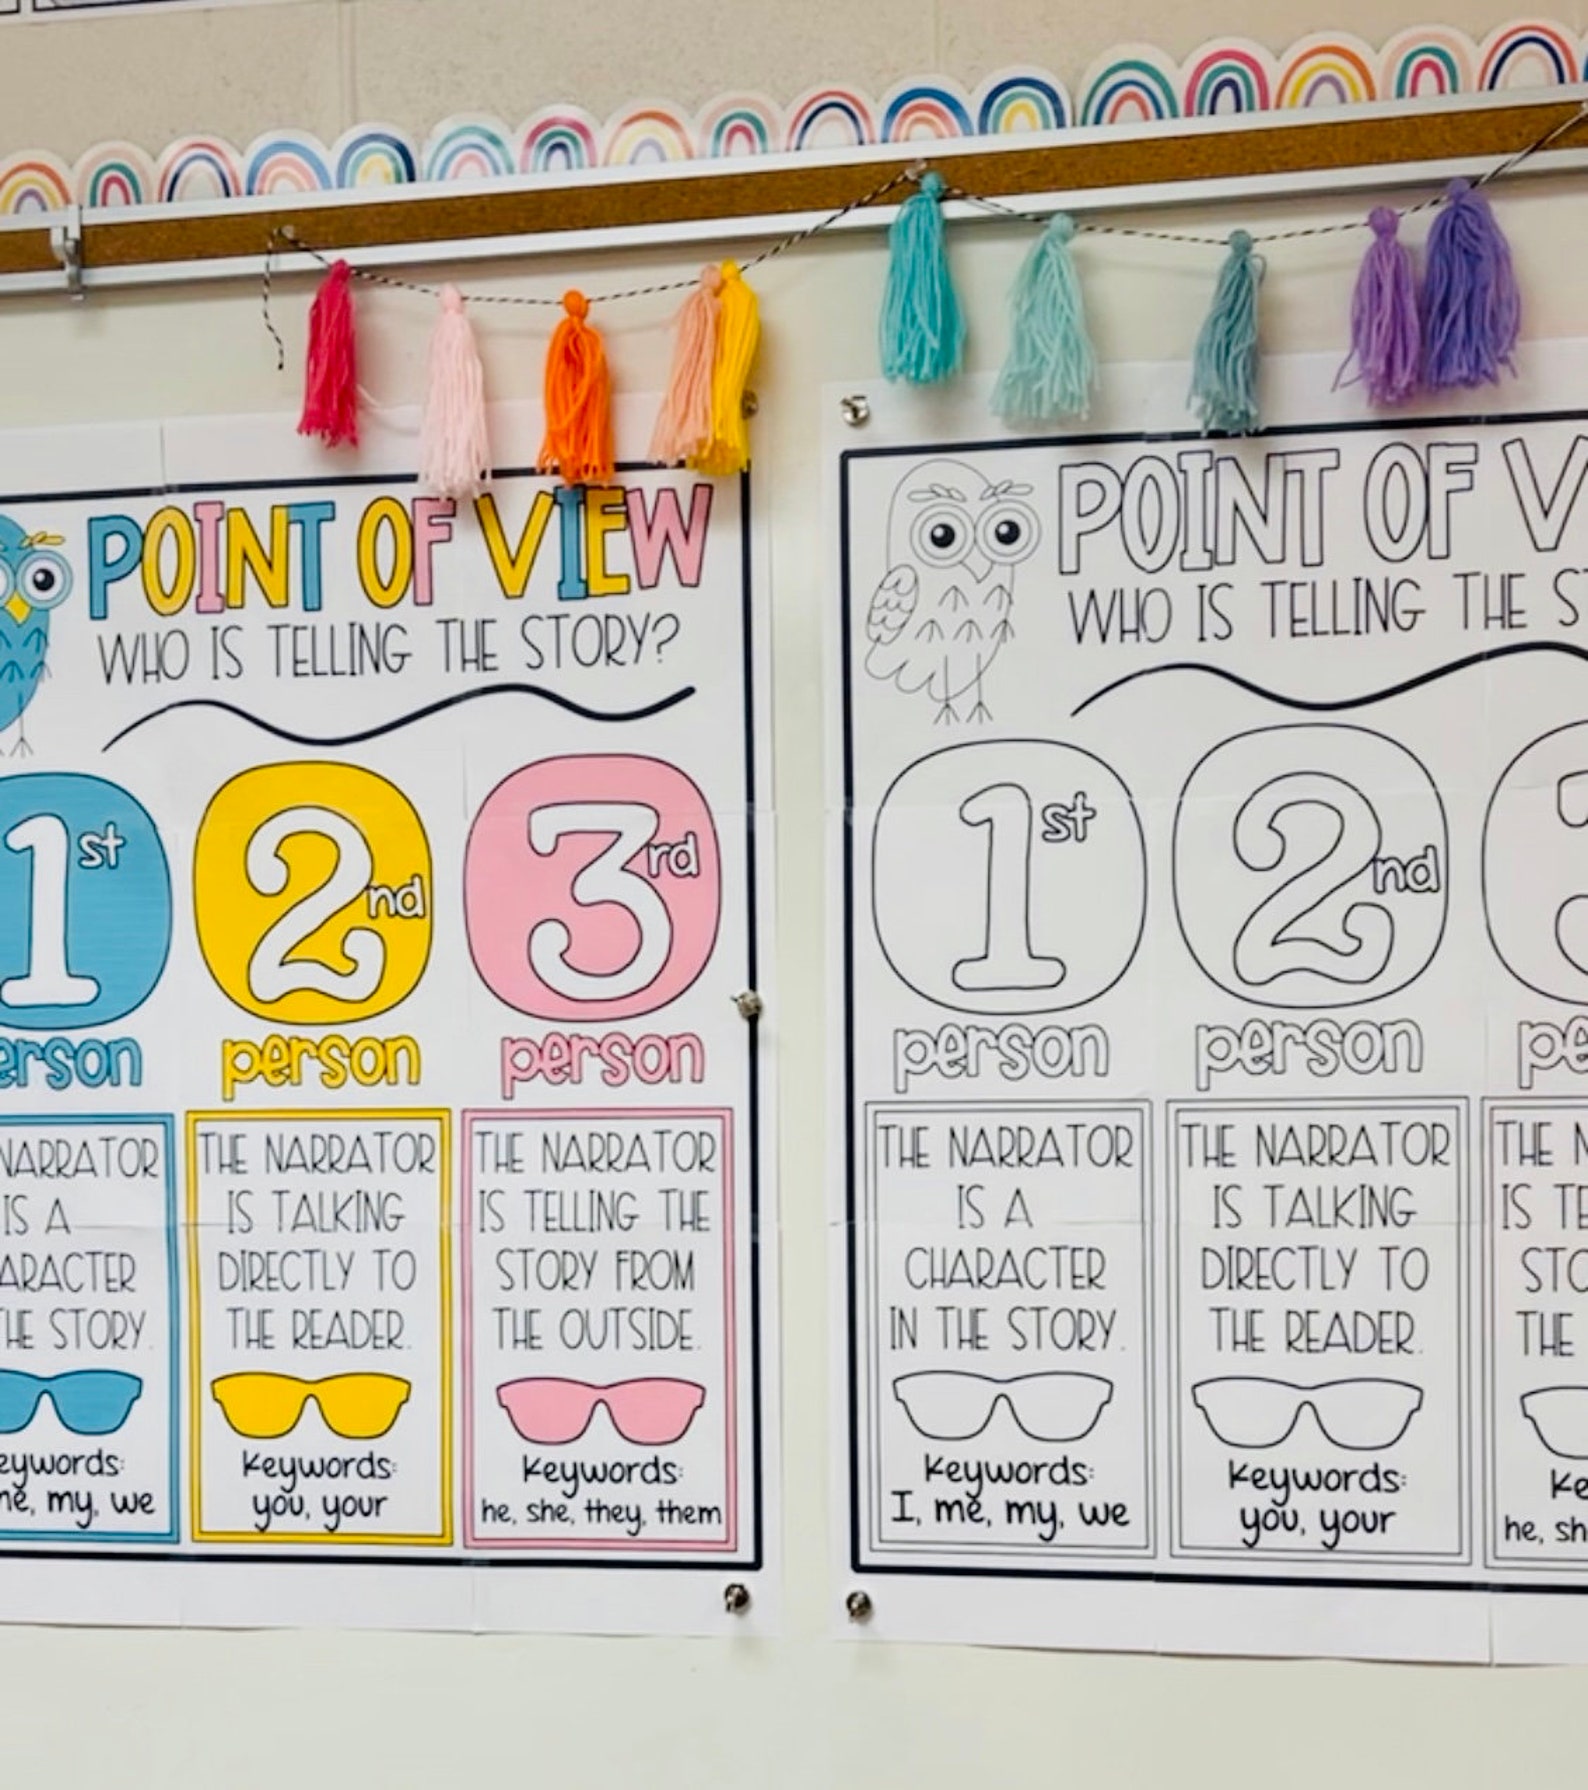 POINT OF VIEW
WHO IS TELLING THE STORY?
1st
2nd
3rd
erson
person
person
NARRATOR
IS A
ARACTER
HE STORY.
THE NARRATOR
IS TALKING
DIRECTLY TO
THE READER.
THE NARRATOR
IS TELLING THE
STORY FROM
THE OUTSIDE.
eywords:
me, my, we
Keywords:
you, your
Keywords:
he, she, they, them
POINT OF V
WHO IS TELLING THE S
1st
2nd
3
person
person
pe
THE NARRATOR
IS A
CHARACTER
IN THE STORY.
THE NARRATOR
IS TALKING
DIRECTLY TO
THE READER.
THE N
IS TE
STO
THE
Keywords:
I, me, my, we
Keywords:
you, your
Ke
he, sh